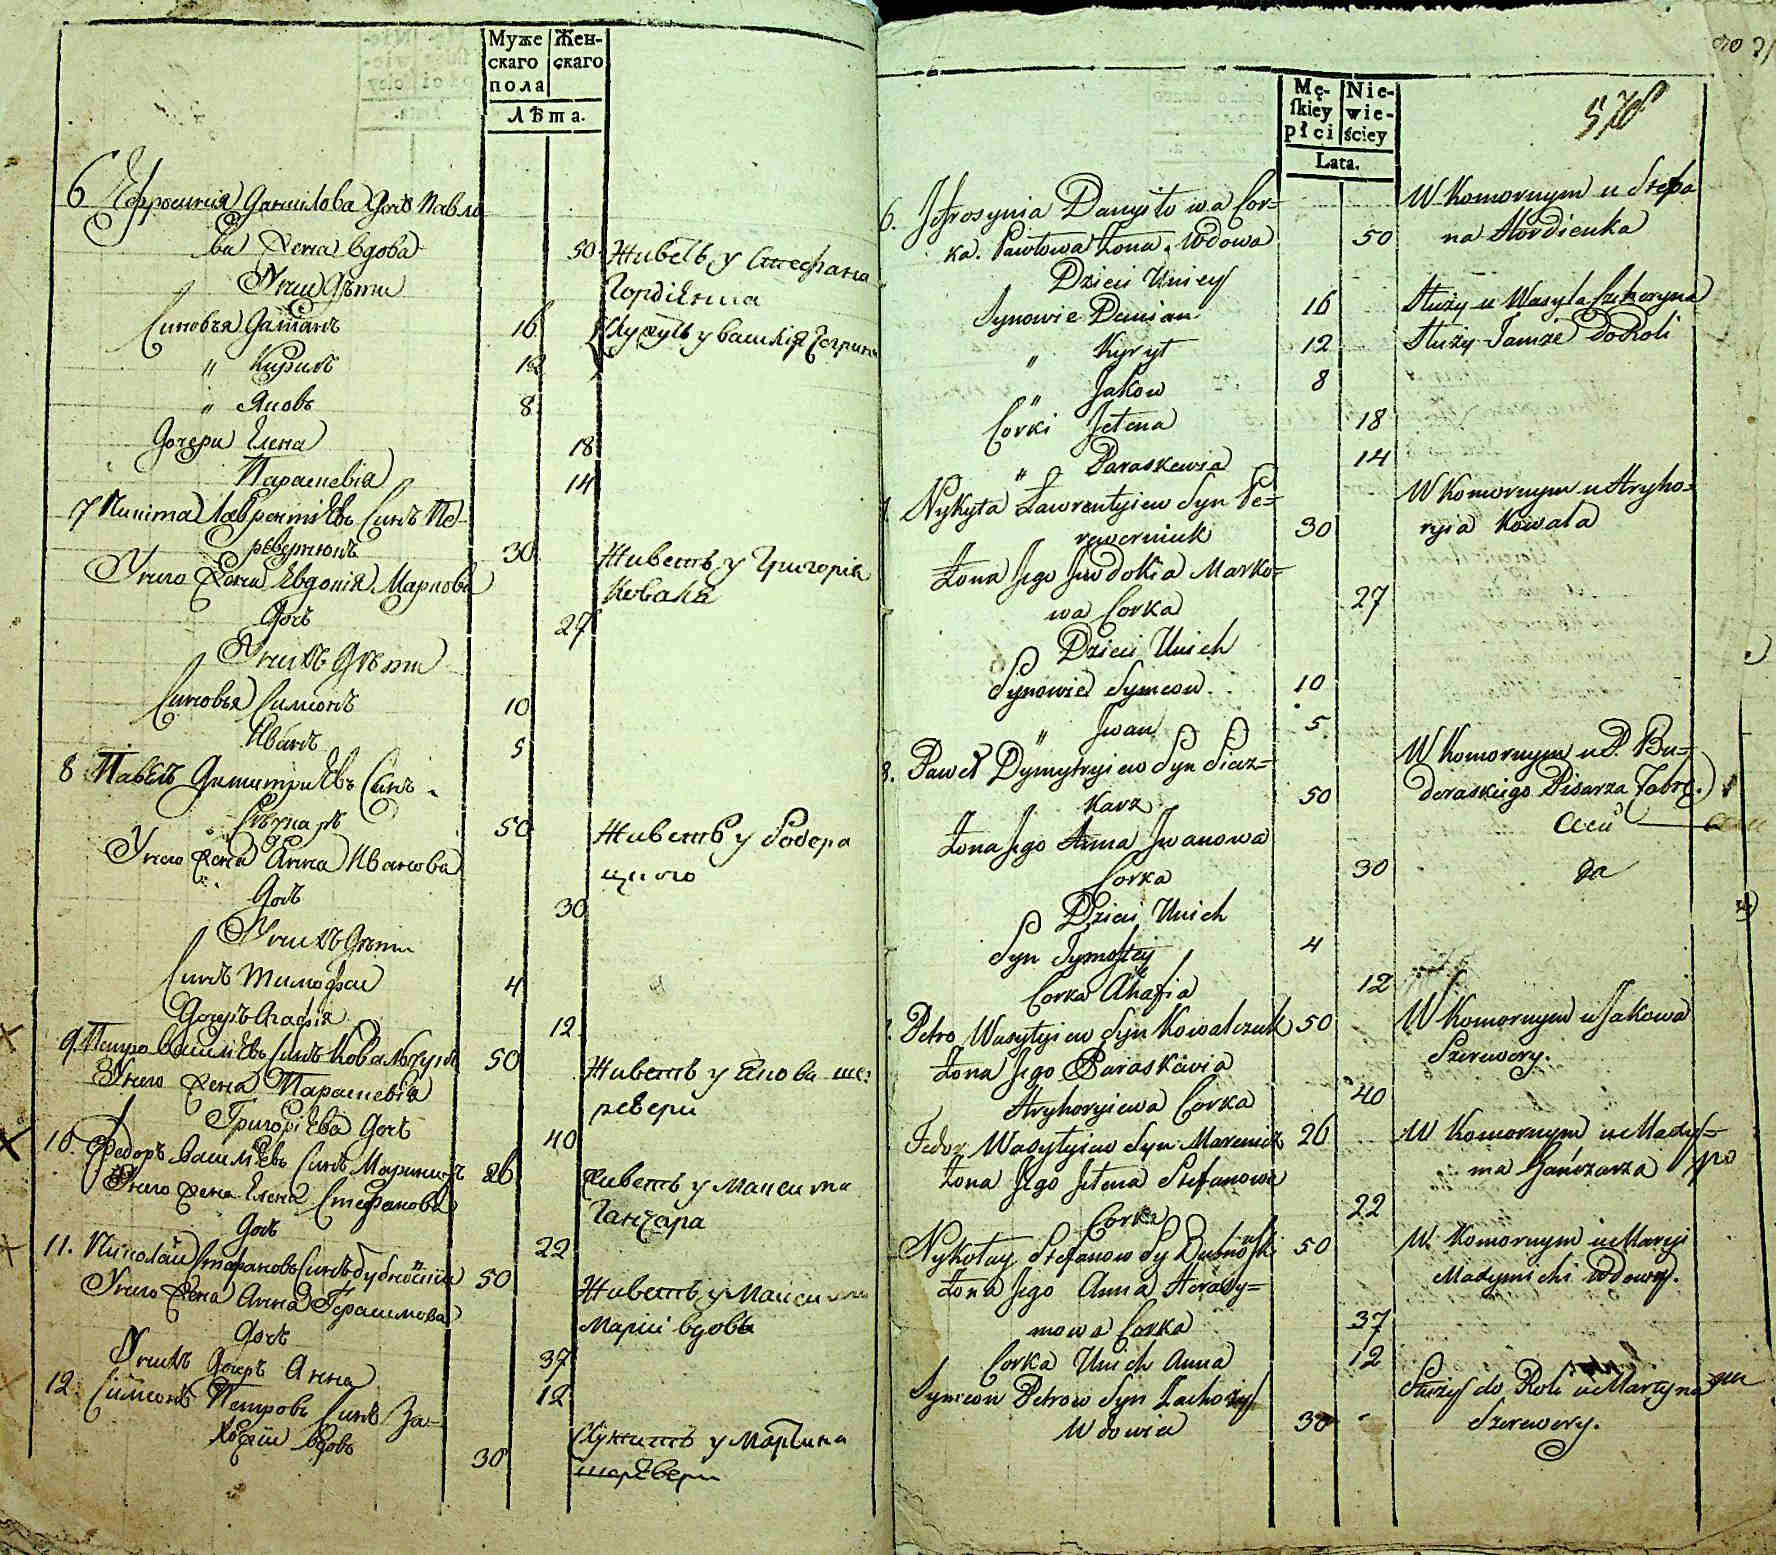 Муже
скаго
пола
Жен-
скаго
Лѣта.
6 Ефросинія Данилова дочь Павло
ва жена вдова 50 Живетъ у Стефана
Гордіенка
У нея дѣти
Синовья Даміанъ 16 Служутъ у Василія
" Кирилъ 12
" Яковъ 8
Дочери Елена 18
Параскевія 14
7 Никита Лаврентіевъ Синъ Пе-
ревертюкъ 30 Живетъ у Григорія
Коваля
У него жена Евдокія Маркова
дочь 27
У нихъ дѣти
Синовья Симіонъ 10
Иванъ 5
8 Павелъ Димитріевъ Синъ
Сѣчкаръ 50 Живетъ у
У него жена Анна Иванова
дочь 30
У нихъ дѣти
Синъ Тимофей 4
Дочерь Агафія 12
9. Петро Василіевъ Синъ Ковальчукъ 50 Живетъ у Якова ше-
ревери
У него жена Параскевія
Григоріева дочь 40
10. Федоръ Василіевъ Синъ Мариничъ 26 Живетъ у Максима
Ганчара
У него жена Елена Стефанова
дочь 22
11. Николай Стефановъ Синъ Дубновскій 50 Живетъ у
Маріи вдовы
У него жена Анна Герасимова
дочь 37
У нихъ дочерь Анна 12
12. Симіонъ Петровъ Синъ За-
хожій вдовъ 30 Служитъ у Мартина
шеревери
578
Mę-
skiey
płci
Nie-
wie-
ściey
Lata.
6. Jefrosynia Danyłowa Cor-
ka. Pawłowa Żona, Wdowa 50
W Komornym u Stefa
na Hordienka
Dzieci Uniey
Synowie Demian 16 Służy u Wasyla
" Kyrył 12 Służy Tamże do Roli
" Jakow 8
Corki Jełena 18
" Paraskewia 14
Nykyta Ławrentyiew Syn Pe-
rewerniuk 30
W Komornym u Hryho-
ryia Kowala
Żona Jego Jwdokia Marko-
wa Corka 27
Dzieci Unich
Synowie Symeon 10
" Jwan 5
8. Paweł Dymytryiew Syn Siecz-
karz 50
W Komornym u P. Bu-
doraskiego Pisarza
Żona Jego Anna Jwanowa
Corka 30
Dzieci Unich
Syn Tymofiy 4
Corka Ahafia 12
Petro Wasylyiew Syn Kowalczuk 50 W Komornym u Jakowa
Szerewery.
Żona Jego Paraskewia
Hryhoryiewa Corka 40
Fedor Wasylyiew Syn Marenicz 26 W Komornym u Maxy-
ma Hańczarza
Żona Jego Jełena Stefanowa
Corka 22
Nykołay Stefanow Sy Dubnowski 50 W Komornym u Maryi
Maxymichi Wdowy.
Żona Jego Anna Herasy-
mowa Corka 37
Corka Unich Anna 12
Symeon Petrow Syn Zachożyi
Wdowia 30
Służy do Roli u Martyna
Szerewery.